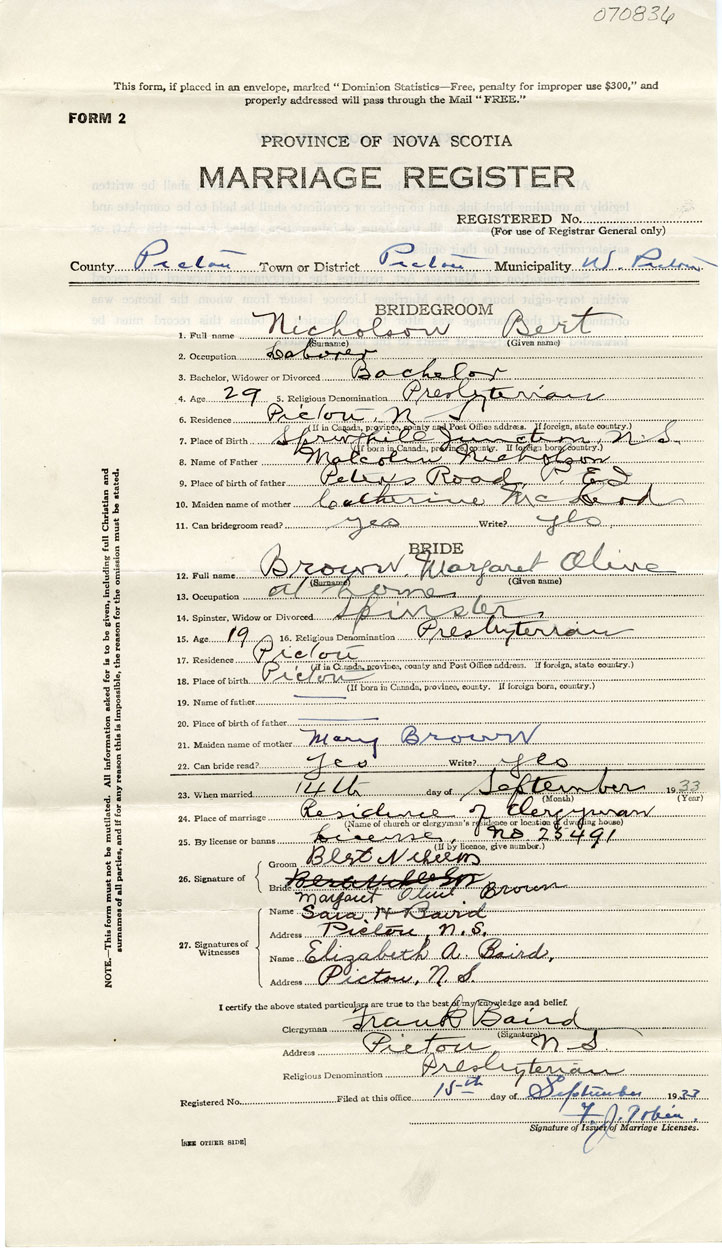 070836
This form, if placed in an envelope, marked "Dominion Statistics—Free, penalty for improper use $300," and
properly addressed will pass through the Mail "FREE."
FORM 2
PROVINCE OF NOVA SCOTIA
MARRIAGE REGISTER
REGISTERED No.
(For use of Registrar General only)
County Pictou Town or District Pictou Municipality W. Pictou
BRIDEGROOM
1. Full name Nicholson Bert
(Surname) (Given name)
2. Occupation Laborer
3. Bachelor, Widower or Divorced Bachelor
4. Age 29 5. Religious Denomination Presbyterian
6. Residence Pictou, N S
(If in Canada, province, county and Post Office address. If foreign, state country.)
7. Place of Birth Springhill Junction, N.S.
(If born in Canada, province, county. If foreign born, country.)
8. Name of Father Malcolm Nicholson
9. Place of birth of father Peters Road, P. E I
10. Maiden name of mother Catherine McLeod
11. Can bridegroom read? yes Write? yes
BRIDE
12. Full name Brown, Margaret Olive
(Surname) (Given name)
13. Occupation at home
14. Spinster, Widow or Divorced Spinster
15. Age 19 16. Religious Denomination Presbyterian
17. Residence Pictou
(If in Canada, province, county and Post Office address. If foreign, state country.)
18. Place of birth Pictou
(If born in Canada, province, county. If foreign born, country.)
19. Name of father
20. Place of birth of father
21. Maiden name of mother Mary Brown
22. Can bride read? yes Write? yes
23. When married 14th day of September 1933
(Month) (Year)
24. Place of marriage Residence of Clergyman
(Name of church or clergyman's residence or location of dwelling house)
25. By license or banns License, No 25491
(If by licence, give number.)
26. Signature of
Groom Bert
Bride
Margaret Olive Brown
27. Signatures of Witnesses
Name Sara H Baird
Address Pictou, N.S.
Name Elizabeth A. Baird,
Address Pictou, N.S.
I certify the above stated particulars are true to the best of my knowledge and belief.
Clergyman Frank Baird
(Signature)
Address Pictou N S.
Religious Denomination Presbyterian
Registered No. Filed at this office 15th day of September 1933
F. J. Tobin
Signature of Issuer of Marriage Licenses.
[SEE OTHER SIDE]
NOTE.—This form must not be mutilated. All information asked for is to be given, including full Christian and
surnames of all parties, and if for any reason this is impossible, the reason for the omission must be stated.